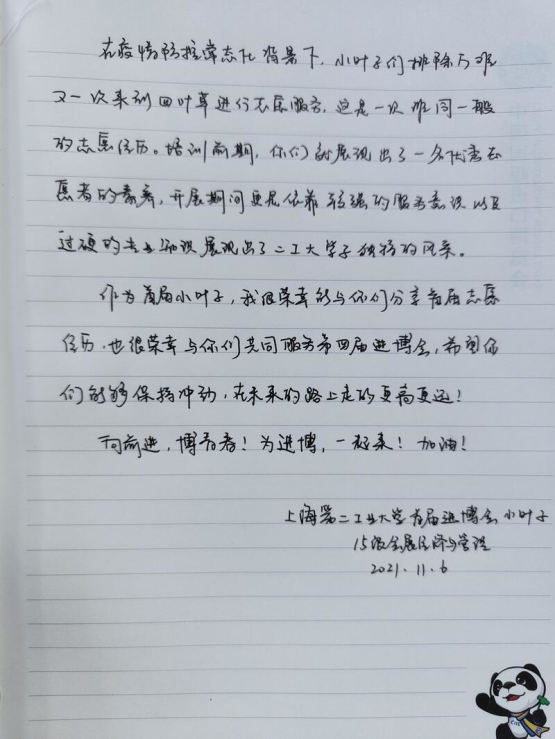 在疫情防控常态化背景下，小叶子们排除万难
又一次来到四叶草进行志愿服务，这是一次非同一般
的志愿经历。培训前期，你们就展现出了一名优秀志
愿者的素养，开展期间更是依靠较强的服务意识以及
过硬的专业知识展现出了二工大学子独特的风采。
作为首届小叶子，我很荣幸能与你们分享首届志愿
经历，也很荣幸与你们共同服务第四届进博会，希望你
们能够保持冲劲，在未来的路上走的更高更远！
向前进，博青春！为进博，一起来！加油！
上海第二工业大学首届进博会小叶子
15级会展经济与管理
2021.11.6